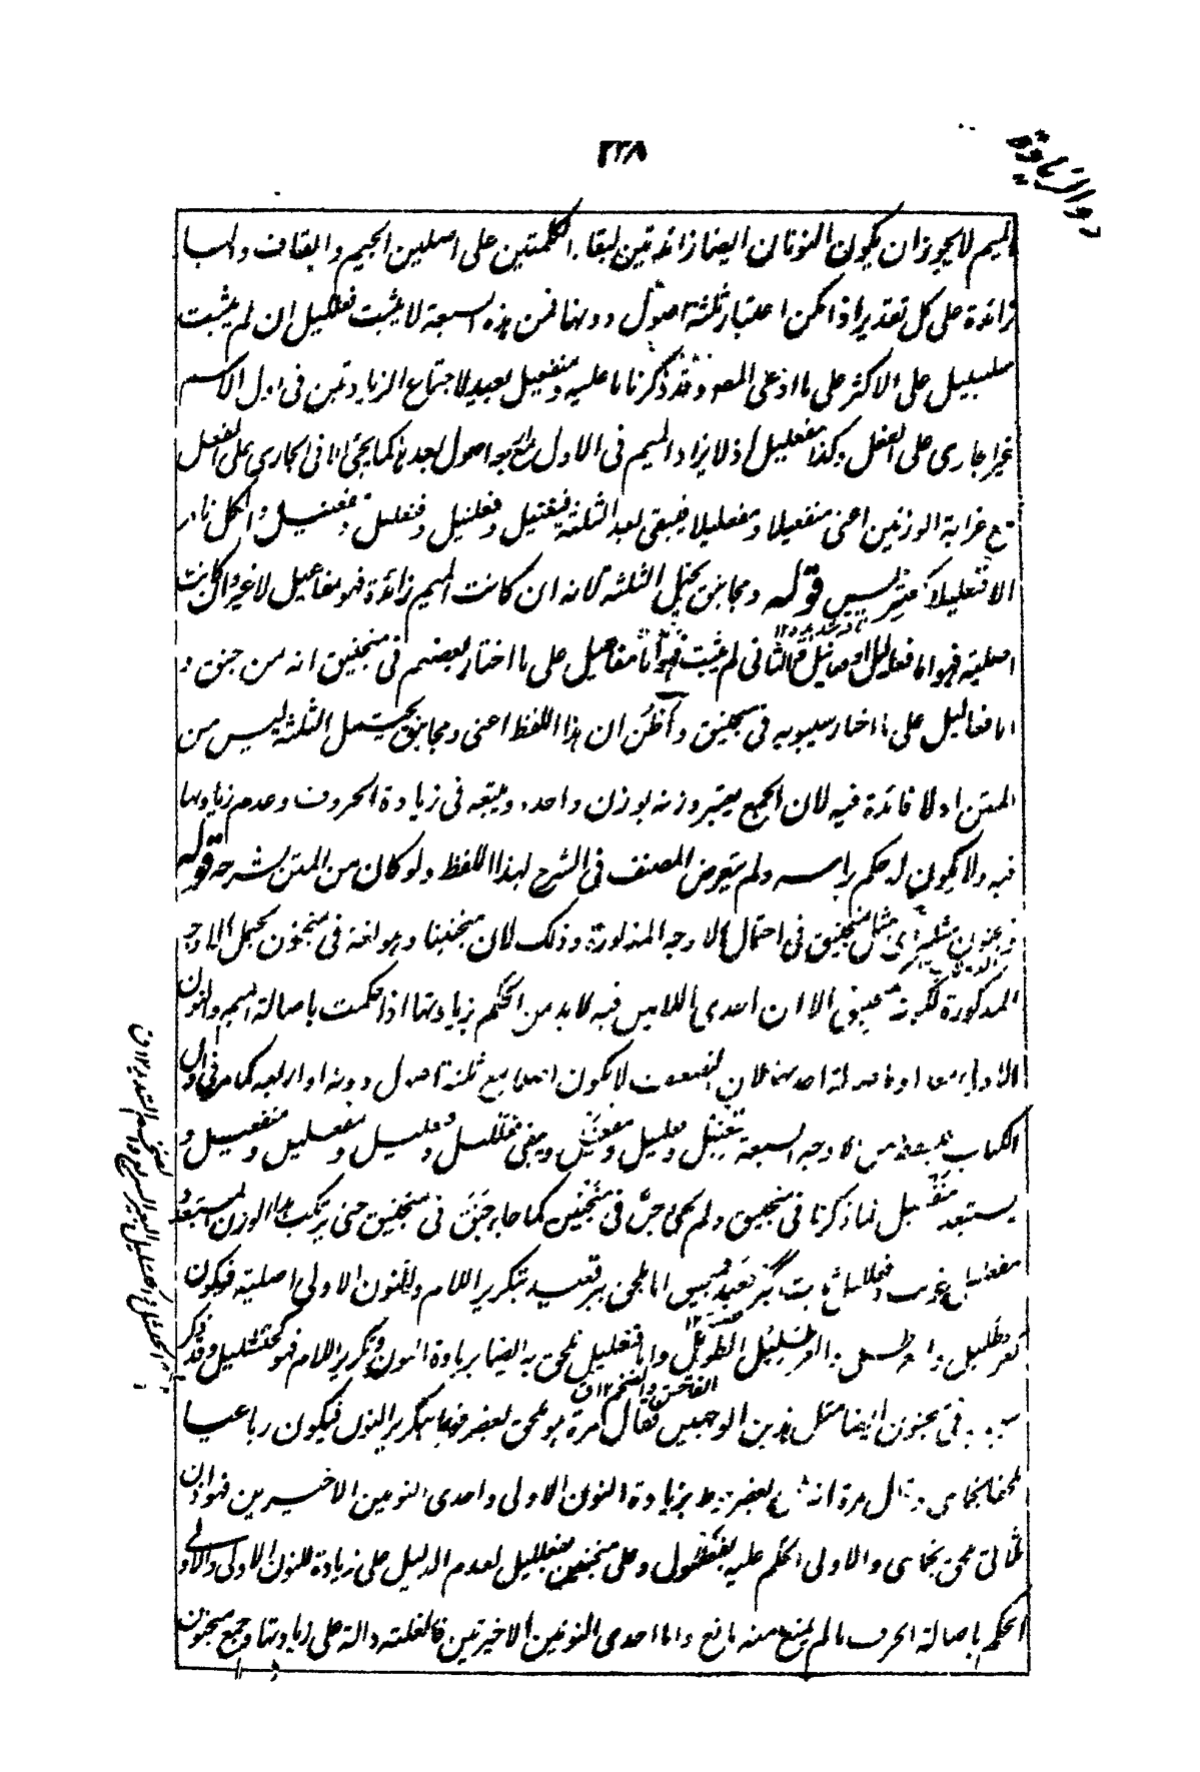 ٢٣٨
ذو الزيادة
الميم لا يجوز ان يكون النونان ايضا زائدتين لبقاء الكلمتين على اصلين الجيم والقاف والياء
زائدة على كل تقدير اذا امكن اعتبار ثلثة اصول دونها فمن هذه السبعة لا يثبت فعلليل ان لم يثبت
سلسبيل على الاكثر على ما ادعى المصه وقد ذكرنا ما عليه ومنفعيل بعيد لاجتماع الزيادتين فى اول الاسم
غير جارى على الفعل وكذا مفعليل اذ لا يزاد الميم فى الاول مع اربعة اصول بعدها كما يجئ الا فى الجارى على الفعل
مع غرابة الوزنين اعنى منفعيلا ومفعليلا فيبقى بعد الثلثة فنعنيل وفعلنيل وفنعليل ومفعنيل والكل نادر
الا فنعليلا كعنتريس قوله ومجانيق يحتمل الثلثة لانه ان كانت الميم زائدة فهو مفاعيل لا غير وان كانت
اصلية فهو اما فعاليل او فعانيل فالثانى لم يثبت فهو اما مفاعيل على ما اختار بعضهم فى منجنيق انه من جنق و
اما فعاليل على ما اختار سيبويه فى منجنيق وأظن ان هذا اللفظ اعنى ومجانيق يحتمل الثلثة ليس من
المتن اذ لا فائدة فيه لان الجمع يعتبر وزنه بوزن واحده ويتبعه فى زيادة الحروف وعدم زيادتها
فيه ولا يكون له حكم برأسه ولم يتعرض المصنف فى الشرح لهذا اللفظ ولو كان من المتن لشرحه قوله
ومنجنون مثله اى مثل منجنيق فى احتمال الاوجه المذكورة وذلك لان منجنينا وهو لغة فى منجنون يحتمل الاوجه
المذكورة لكونه كمنجنيق الا ان احدى اللامين فيه لا بد من الحكم بزيادتها اذا حكمت باصالة الميم والنون
الاولى معا او باصالة احدهما لان التضعيف لا يكون اصلا مع ثلثة اصول دونه او اربعة كما مر فى اول
الكتاب فيسقط من الاوجه السبعة فنعنيل وفعلنيل ومفعنيل ويبقى فعلليل وفنعليل ومفعليل ومنفعيل و
يستبعد منفعيل لما ذكرنا فى منجنيق ولم يجئ جن فى منجنين كما جاء جنق فى منجنيق حتى يرتكب هذا الوزن المستبعد و
مفعليل غريب وفعلليل ثابت كبرقعيد فمنجنين اما ملحق ببرقعيد بتكرير اللام والنون الاولى اصلية فيكون
كعرطليل والعرطليل الطويل واما فنعليل ملحق به ايضا بزيادة النون وتكرير اللام فهو كخنشليل وقد ذكر
سيبويه فى منجنون ايضا مثل هذين الوجهين فقال مرة هو ملحق بعضرفوط بتكرير النون فيكون رباعيا
ملحقا بخماسى وقال مرة انه ملحق بعضرفوط بزيادة النون الاولى واحدى النونين الاخيرين فهو اذن
ثلاثى ملحق بخماسى والاولى الحكم عليه بفعللول وعلى منجنين بفعلليل لعدم الدليل على زيادة النون الاولى والاولى
الحكم باصالة الحرف ما لم يمنع منه مانع واما احدى النونين الاخيرتين فالغلبة دالة على زيادتها وجمع منجنون